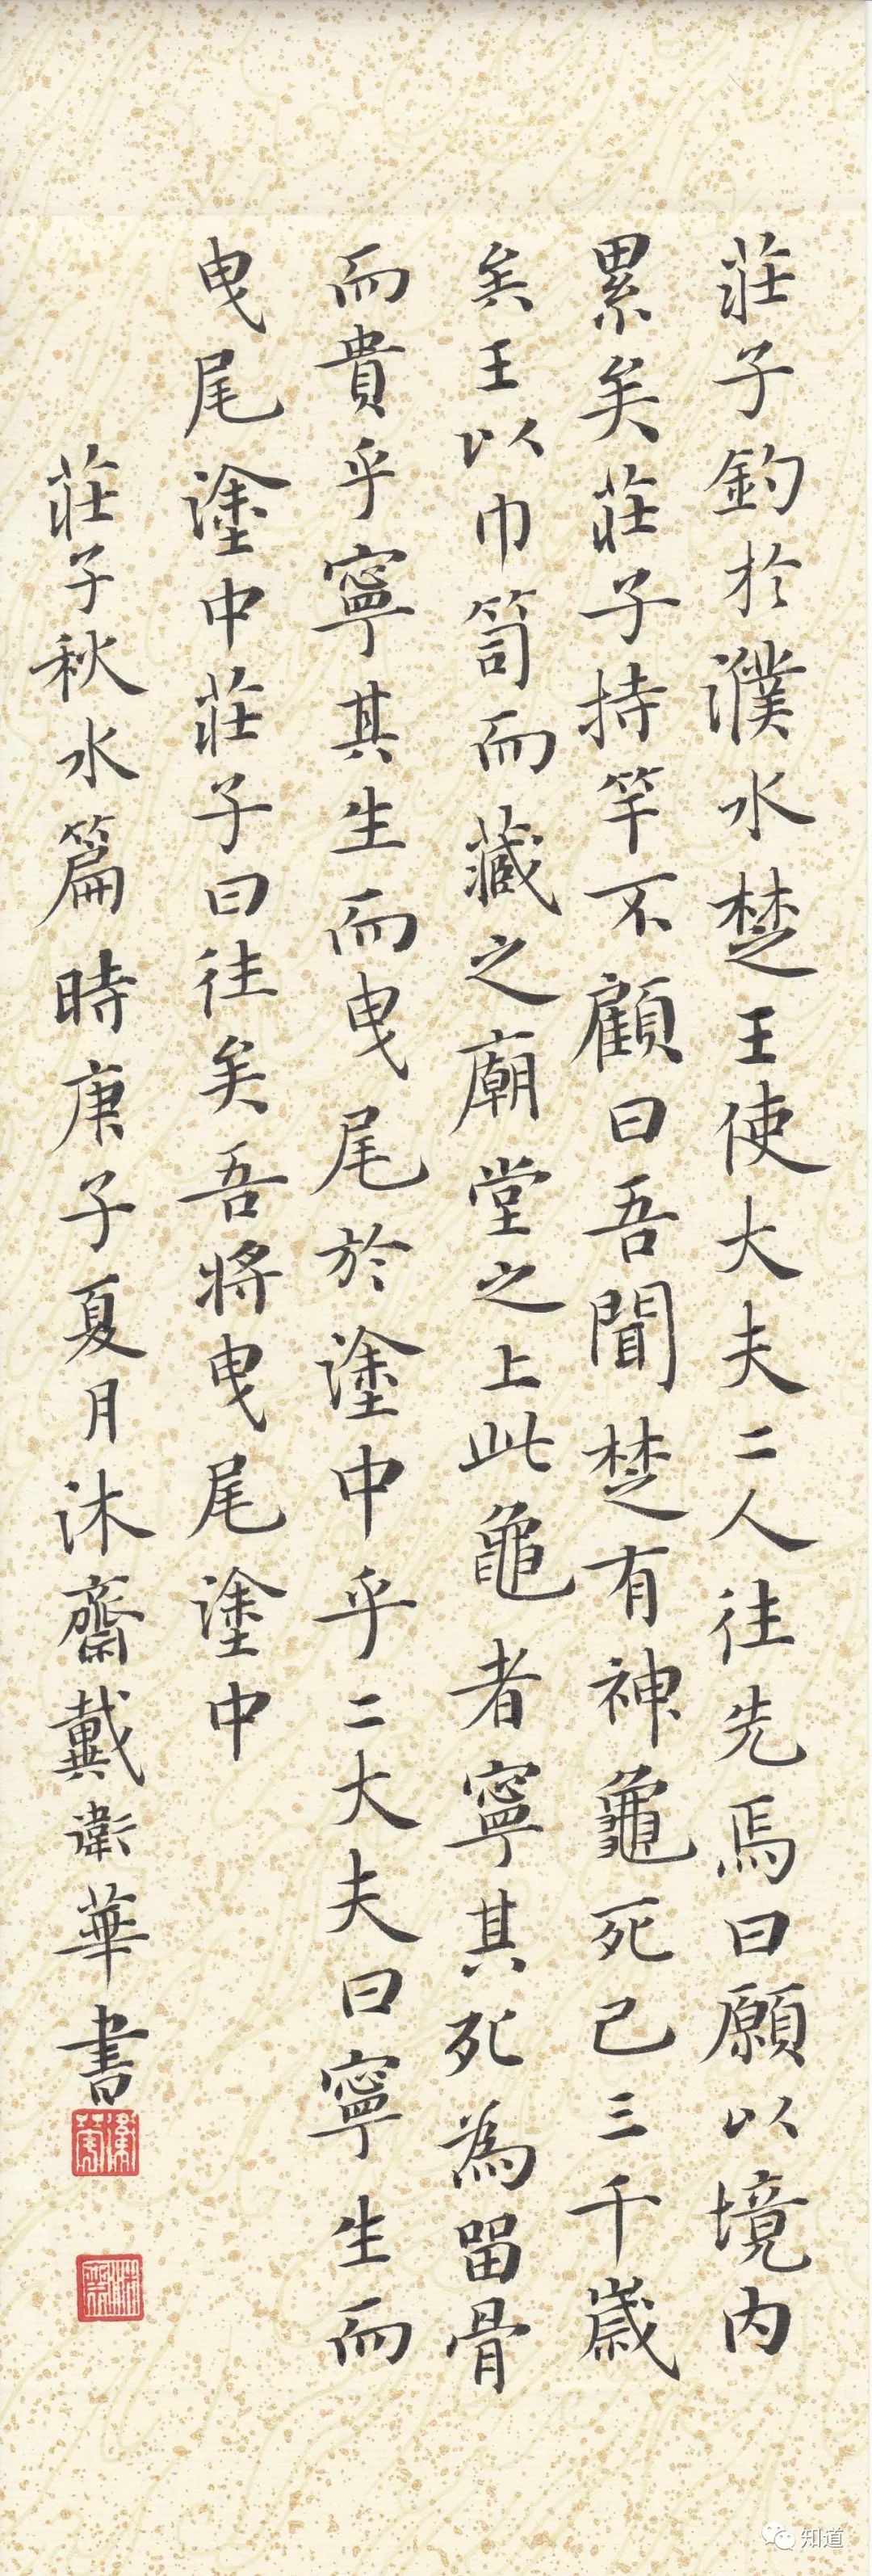 莊子釣於濮水楚王使大夫二人往先焉曰願以境内
累矣莊子持竿不顧曰吾聞楚有神龜死已三千歲
矣王以巾笥而藏之廟堂之上此龜者寧其死為留骨
而貴乎寧其生而曳尾於塗中乎二大夫曰寧生而
曳尾塗中莊子曰往矣吾將曳尾塗中
莊子秋水篇時庚子夏月沐齋戴衛華書
知道